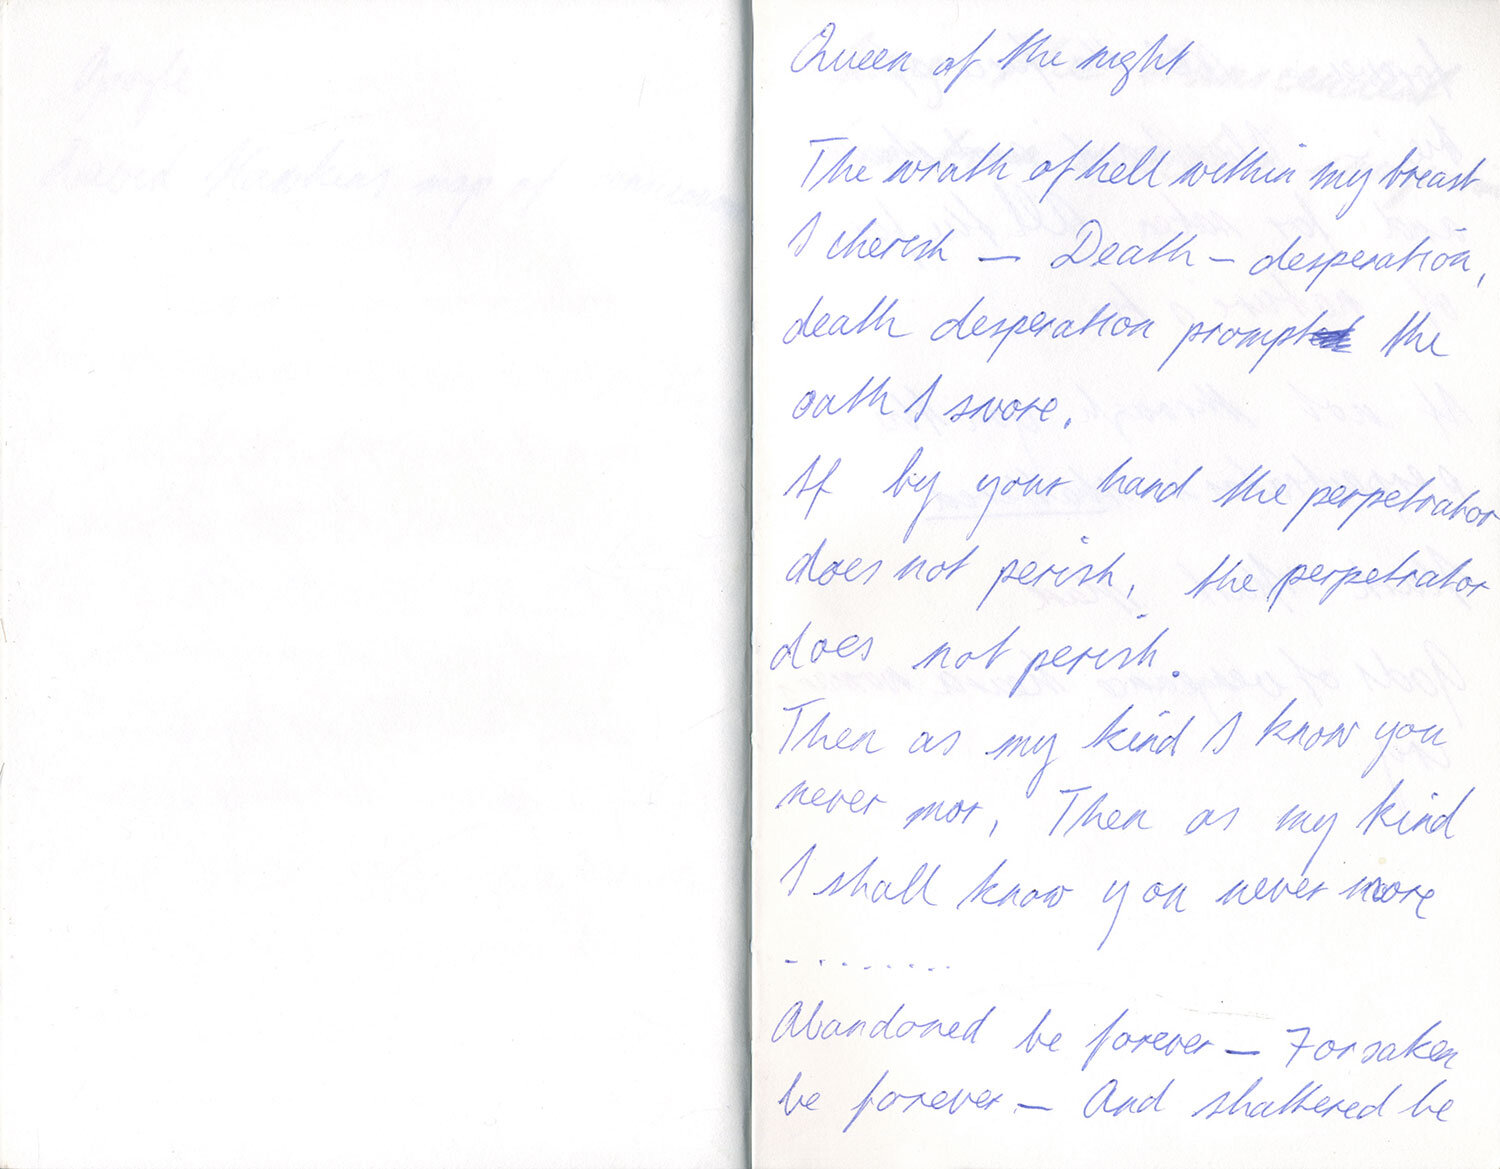 Queen of the night
The wrath of hell within my breast
I cherish — Death — desperation,
death desperation prompt the
oath I swore.
If by your hand the perpetrator
does not perish, the perpetrator
does not perish.
Then as my kind I know you
never mor, Then as my kind
I shall know you never more
- . . . . . . .
Abandoned be forever — Forsaken
be forever — And shattered be